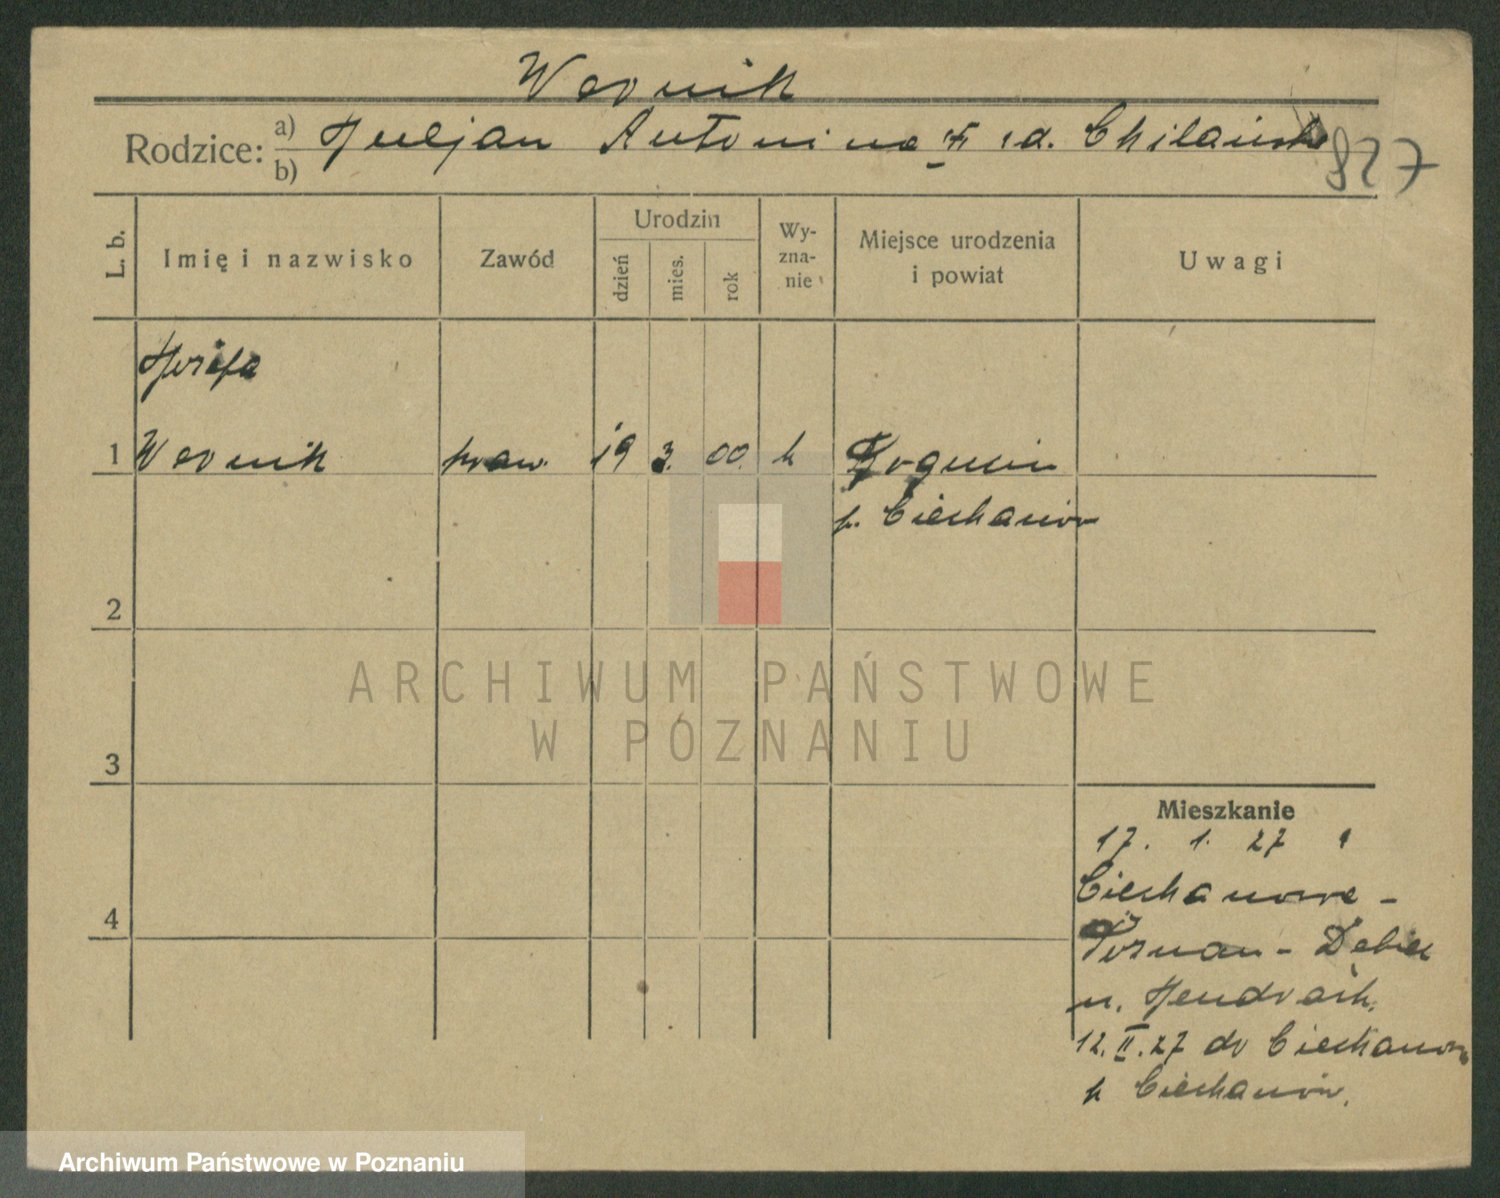 Wernik
Rodzice: a) b) Juljan Antonina
827
L. b. Imię i nazwisko Zawód Urodzin dzień mies. rok Wy-zna-nie Miejsce urodzenia i powiat Uwagi
Józefa
1 Wernik prac. 19 3. 00. k
p. Ciechanów
2
3
4
Mieszkanie
17. 1. 27
Ciechanowa -
Poznań - Dębiec
u.
12. II. 27 do Ciechanowa
p Ciechanów.
ARCHIWUM PAŃSTWOWE
W POZNANIU
Archiwum Państwowe w Poznaniu